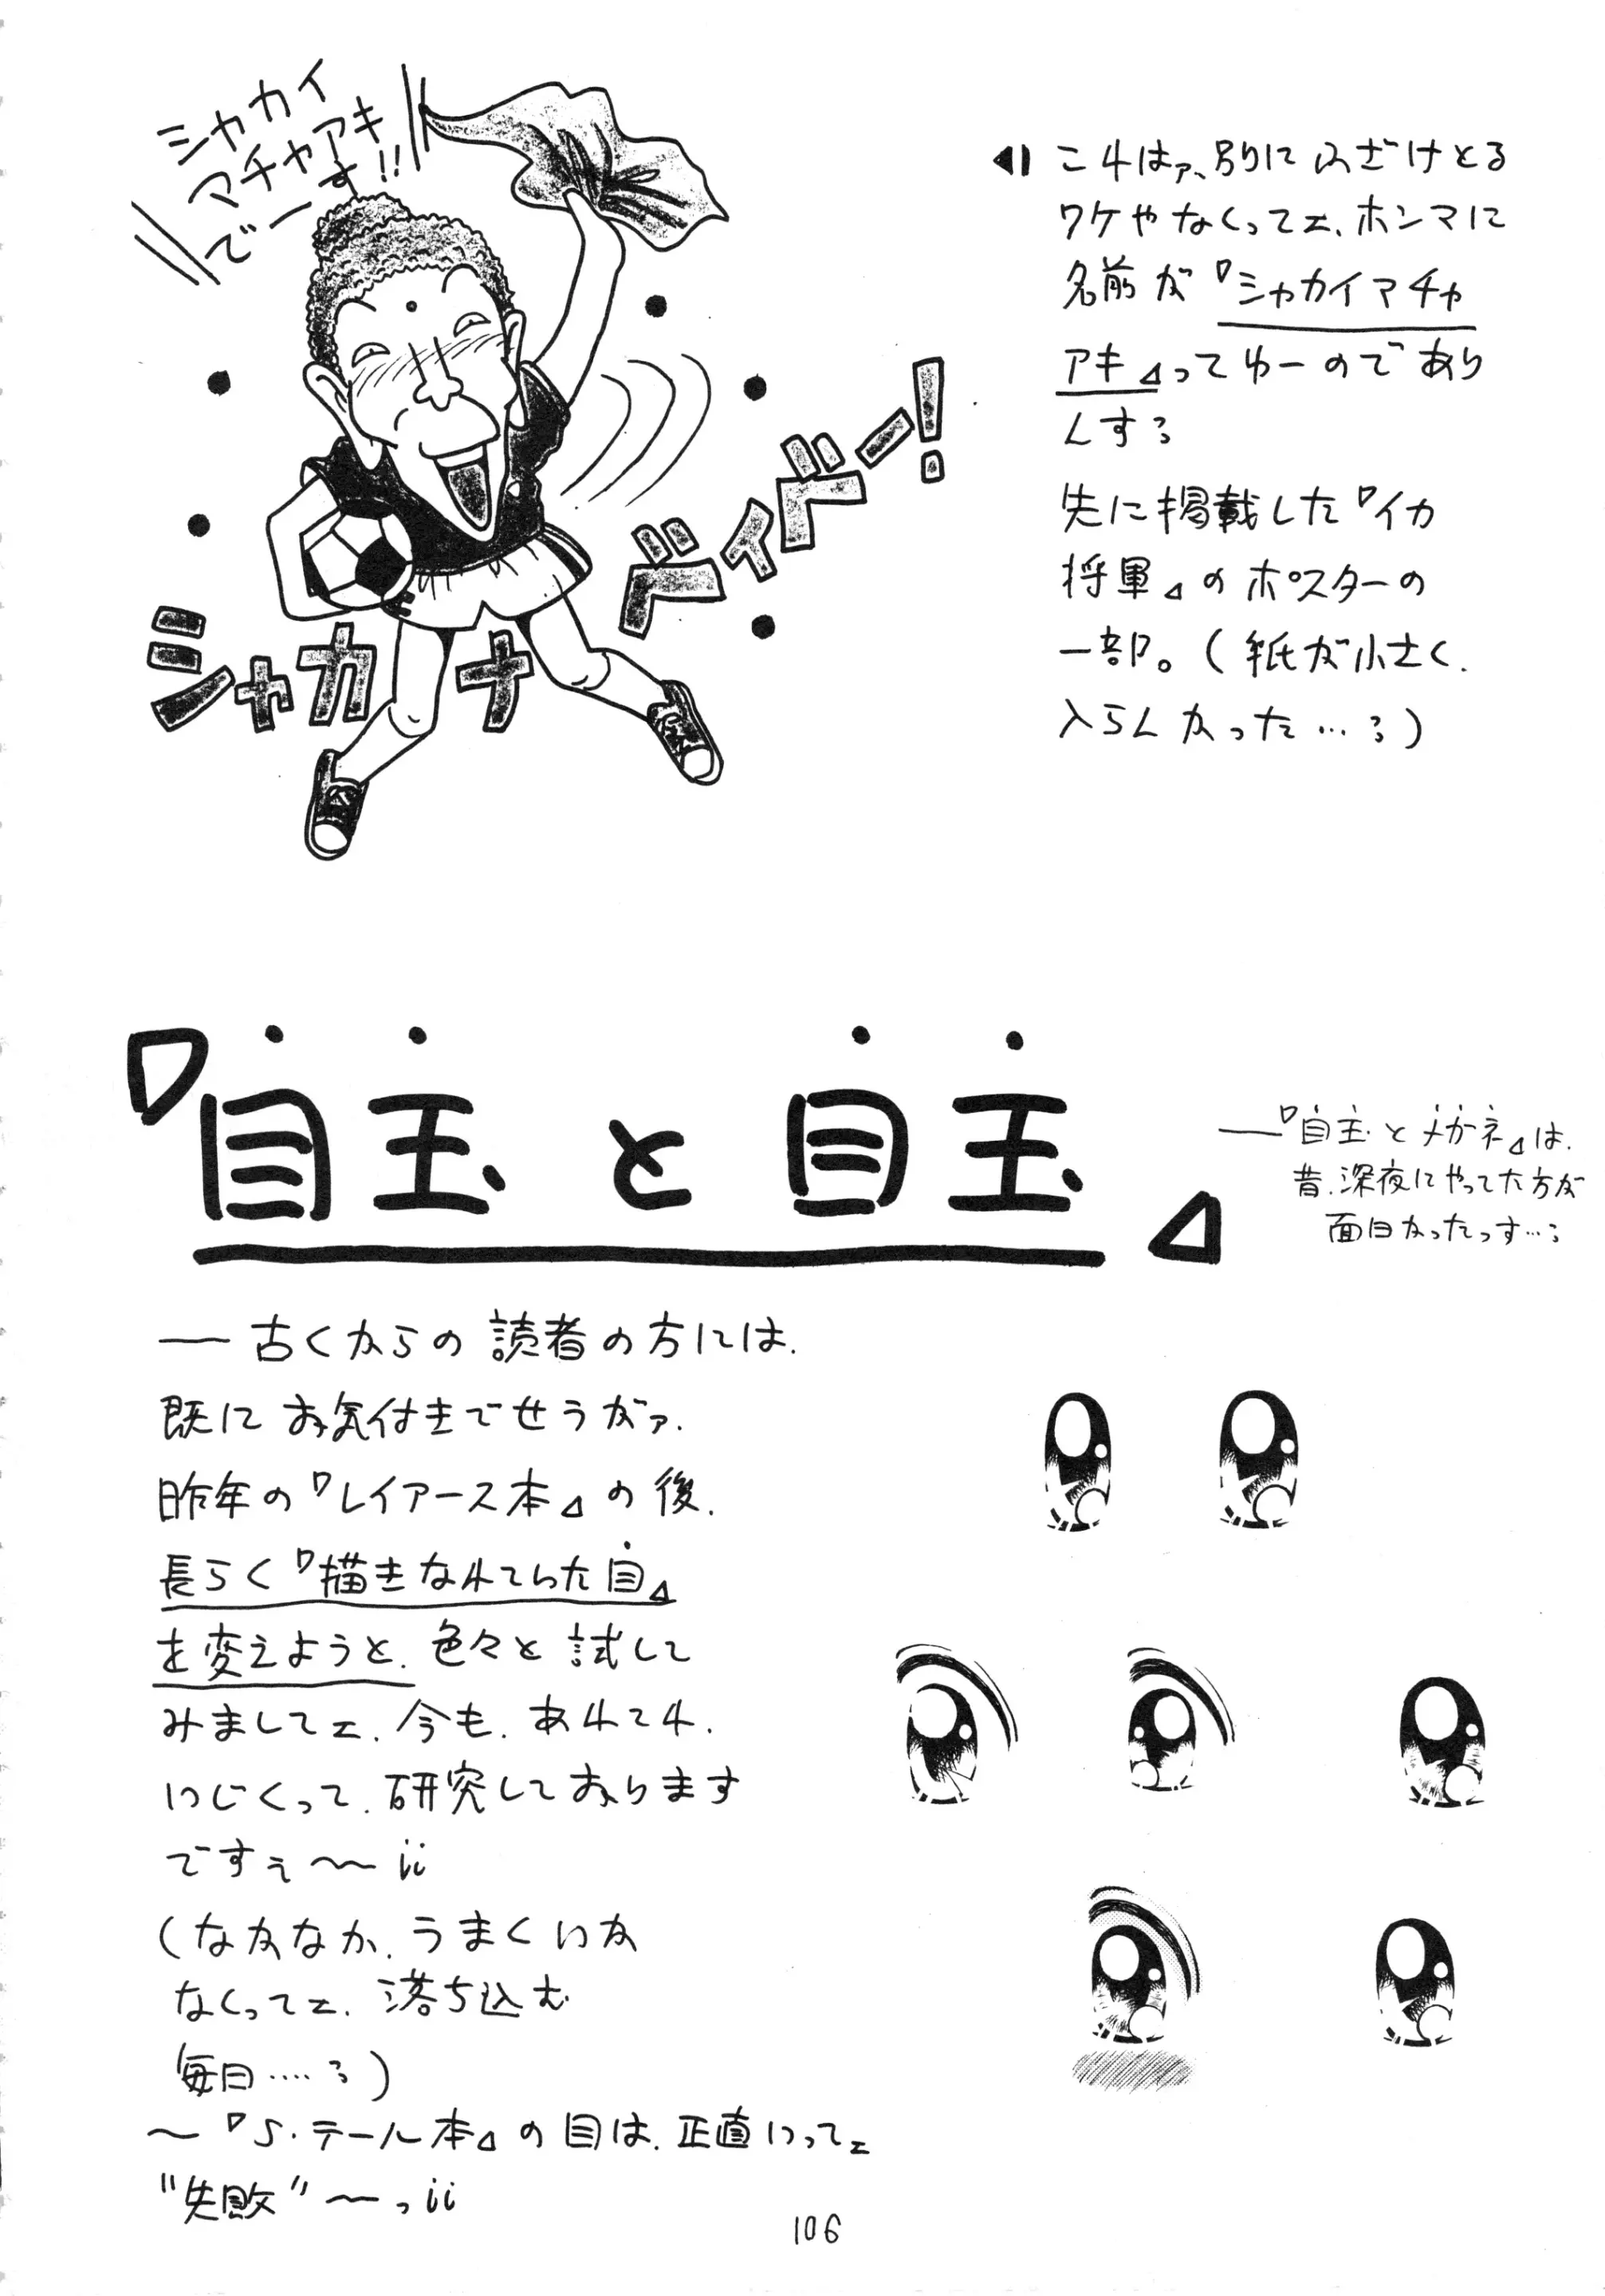 シャカイ
マチャアキ
でーす!!
シャカ ナ ベイベー!
◀| これはァ、別にふざけとる
ワケやなくってェ、ホンマに
名前が『シャカイマチャ
アキ』ってゆーのであり
んするろ
先に掲載した『イカ
将軍』のポスターの
一部。(紙が小さく、
入らんかった…ろ)
『目玉と目玉』
──『目玉とメガネ』は、
昔、深夜にやってた方が
面白かったっす…ろ
──古くからの読者の方には、
既にお気付きでせうがァ、
昨年の『レイアース本』の後、
長らく『描きなれていた目』
を変えようと、色々と試して
みましてェ、今も、あれこれ、
いじくって、研究しております
ですぇ〜〜ii
(なかなか、うまくいか
なくってェ、落ち込む
毎日‥‥ろ)
〜『S・テール本』の目は、正直いってェ
"失敗"〜っii
106